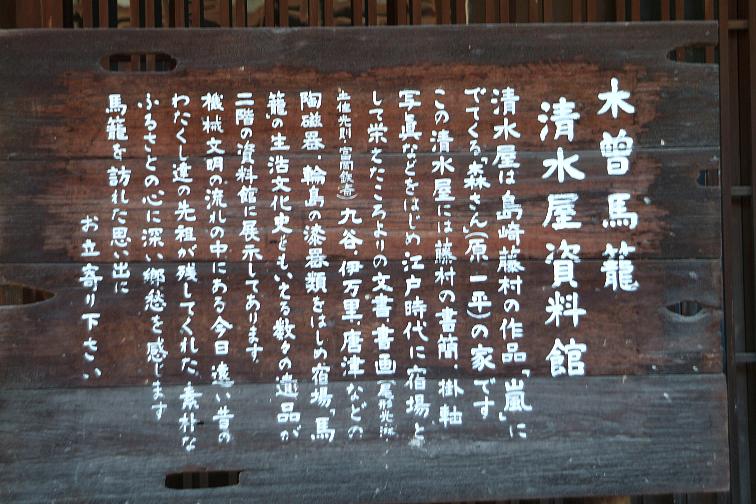 木曽馬籠
清水屋資料館
清水屋は島崎藤村の作品「嵐」に
でてくる「森さん」(原一平)の家です
この清水屋には藤村の書簡、掛軸
写真などをはじめ江戸時代に宿場と
して栄えたころよりの文書書画(尾形光淋
土佐光則・富岡鉄斎)九谷・伊万里・唐津などの
陶磁器、輪島の漆器類をはじめ宿場「馬
籠」の生活文化史ともいえる数々の遺品が
二階の資料館に展示してあります
機械文明の流れの中にある今日遠い昔の
わたくし達の先祖が残してくれた、素朴な
ふるさとの心に深い郷愁を感じます
馬籠を訪れた思い出に
お立寄り下さい、